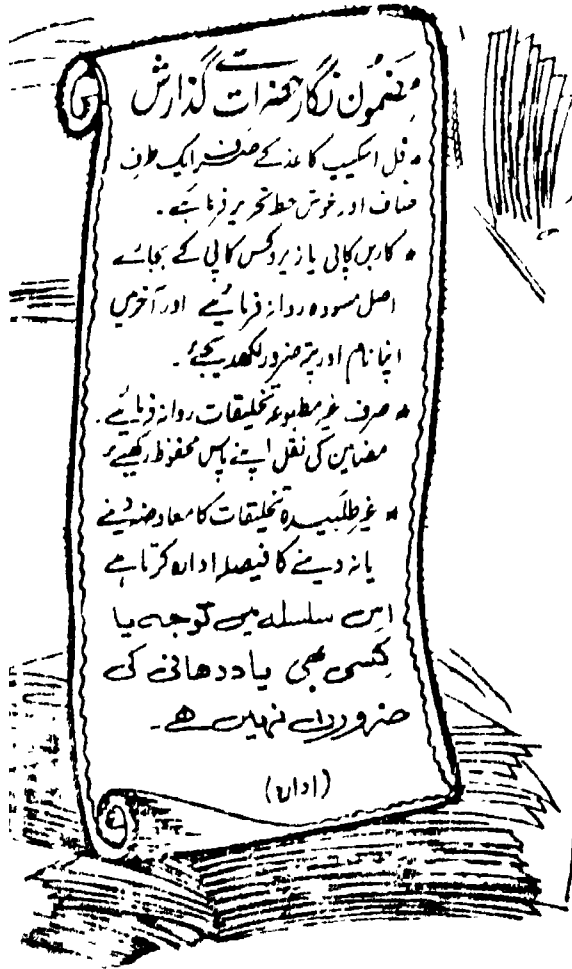 مضمون نگار حضرات سے گذارش
* فل اسکیپ کاغذ کے صرف ایک طرف
صاف اور خوش خط تحریر فرمائیے۔
* کاربن کاپی یا زیروکس کاپی کے بجائے
اصل مسودہ روانہ فرمائیے اور آخر میں
اپنا نام اور پتہ ضرور لکھ دیجئے۔
* صرف غیر مطبوعہ تخلیقات روانہ فرمائیے۔
مضامین کی نقل اپنے پاس محفوظ رکھیے
* غیر طلبیدہ تخلیقات کا معاوضہ دینے
یا نہ دینے کا فیصلہ ادارہ کرتا ہے
اس سلسلہ میں توجہ یا
کسی بھی یاددھانی کی
ضرورت نہیں ہے۔
(ادارہ)